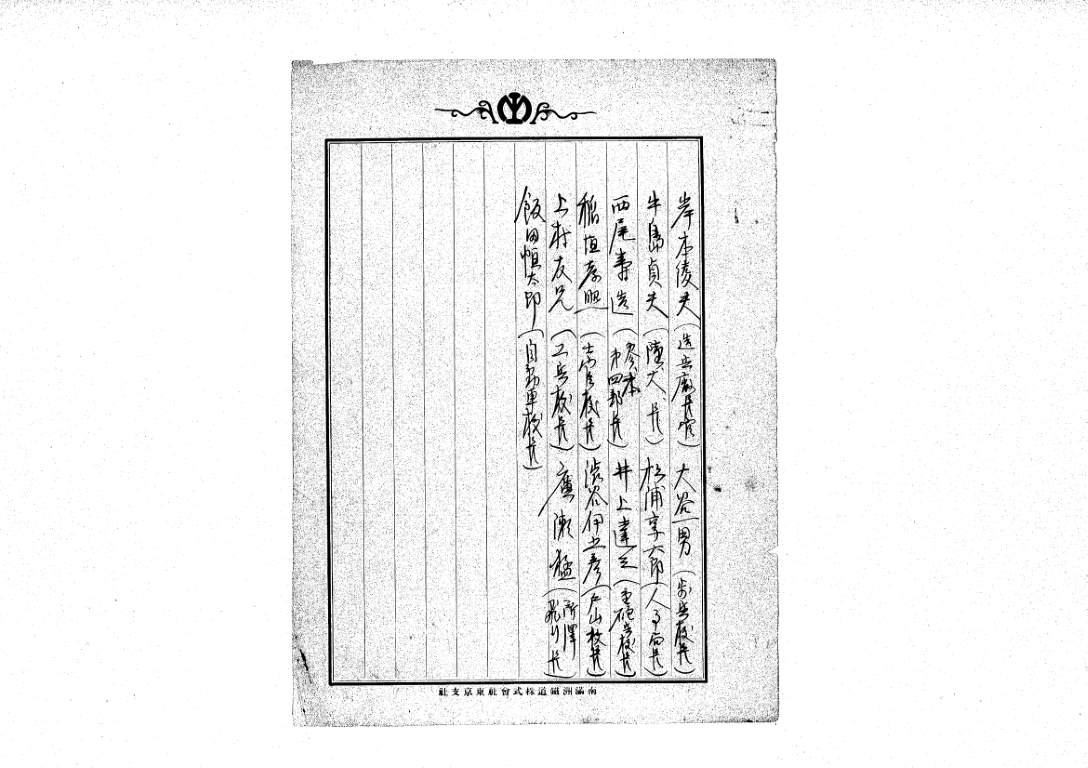 岸本綾夫(造兵廠長官) 大谷一男(歩兵校長)
牛島貞夫(陸大長) 松浦享太郎(人事局長)
西尾壽造(参本第四部長) 井上達三(重砲兵校長)
稲垣孝照(士官校長) 渋谷伊之彦(戸山校長)
上村友兄(工兵校長) 廣瀬猛(所澤飛行長)
飯田恒太郎(自動車校長)
南滿洲鐵道株式會社東京支社